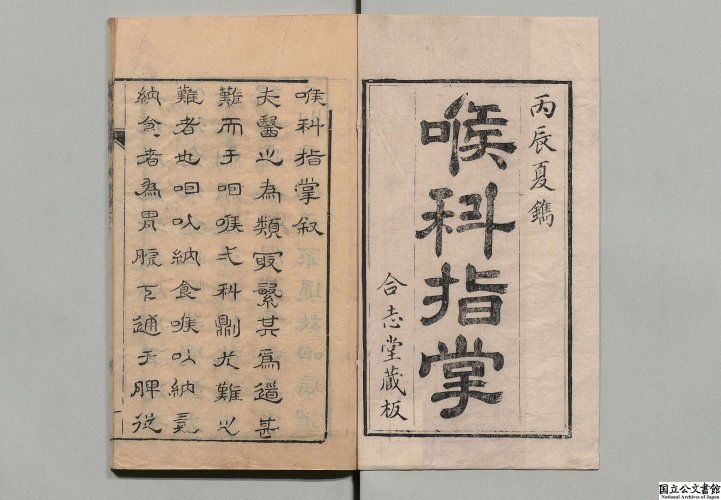 丙辰夏鐫
喉科指掌
合志堂藏板
喉科指掌叙
夫醫之為類寂繁其為道甚
難而于咽喉弍科劑尤難之
難者也咽以納食喉以納氣
納食者為胃脘下通于脾從
国立公文書館
National Archives of Japan